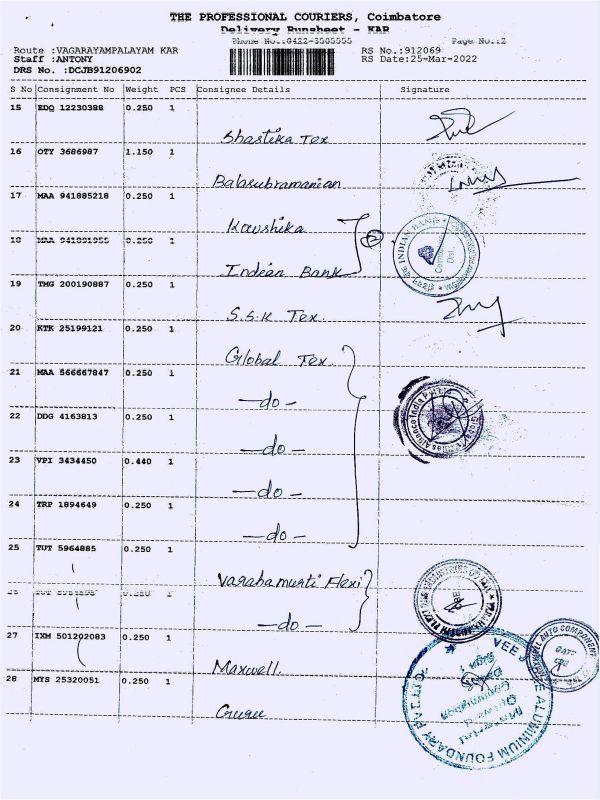 THE PROFESSIONAL COURIERS, Coimbatore
Delivery Runsheet - KAR
Phone No.:0422-3505555 Page No.:2
Route :VAGARAYAMPALAYAM KAR RS No.:912069
Staff :ANTONY RS Date:25-Mar-2022
DRS No. :DCJB91206902
S No Consignment No Weight PCS Consignee Details Signature
15 EDQ 12230388 0.250 1
Shastika Tex
16 OTY 3686987 1.150 1
Balasubramanian
17 MAA 941885218 0.250 1
Kavshika
18 MAA 941891955 0.250 1
Indian Bank
2
INDIAN BANK
19 TMG 200190887 0.250 1
S.S.K Tex.
20 KTK 25199121 0.250 1
Global Tex.
21 MAA 566667847 0.250 1
-do-
22 DDG 4163813 0.250 1
-do-
23 VPI 3434450 0.440 1
-do-
24 TRP 1894649 0.250 1
-do-
25 TUT 5964885 0.250 1
Varahamurti Flexi
0.250 1
-do-
27 IXM 501202083 0.250 1
Maxwell.
28 MYS 25320051 0.250 1
Guru
MAXWELL AUTO COMPONENT
VEE ALUMINIUM FOUNDARY PVT. LTD.